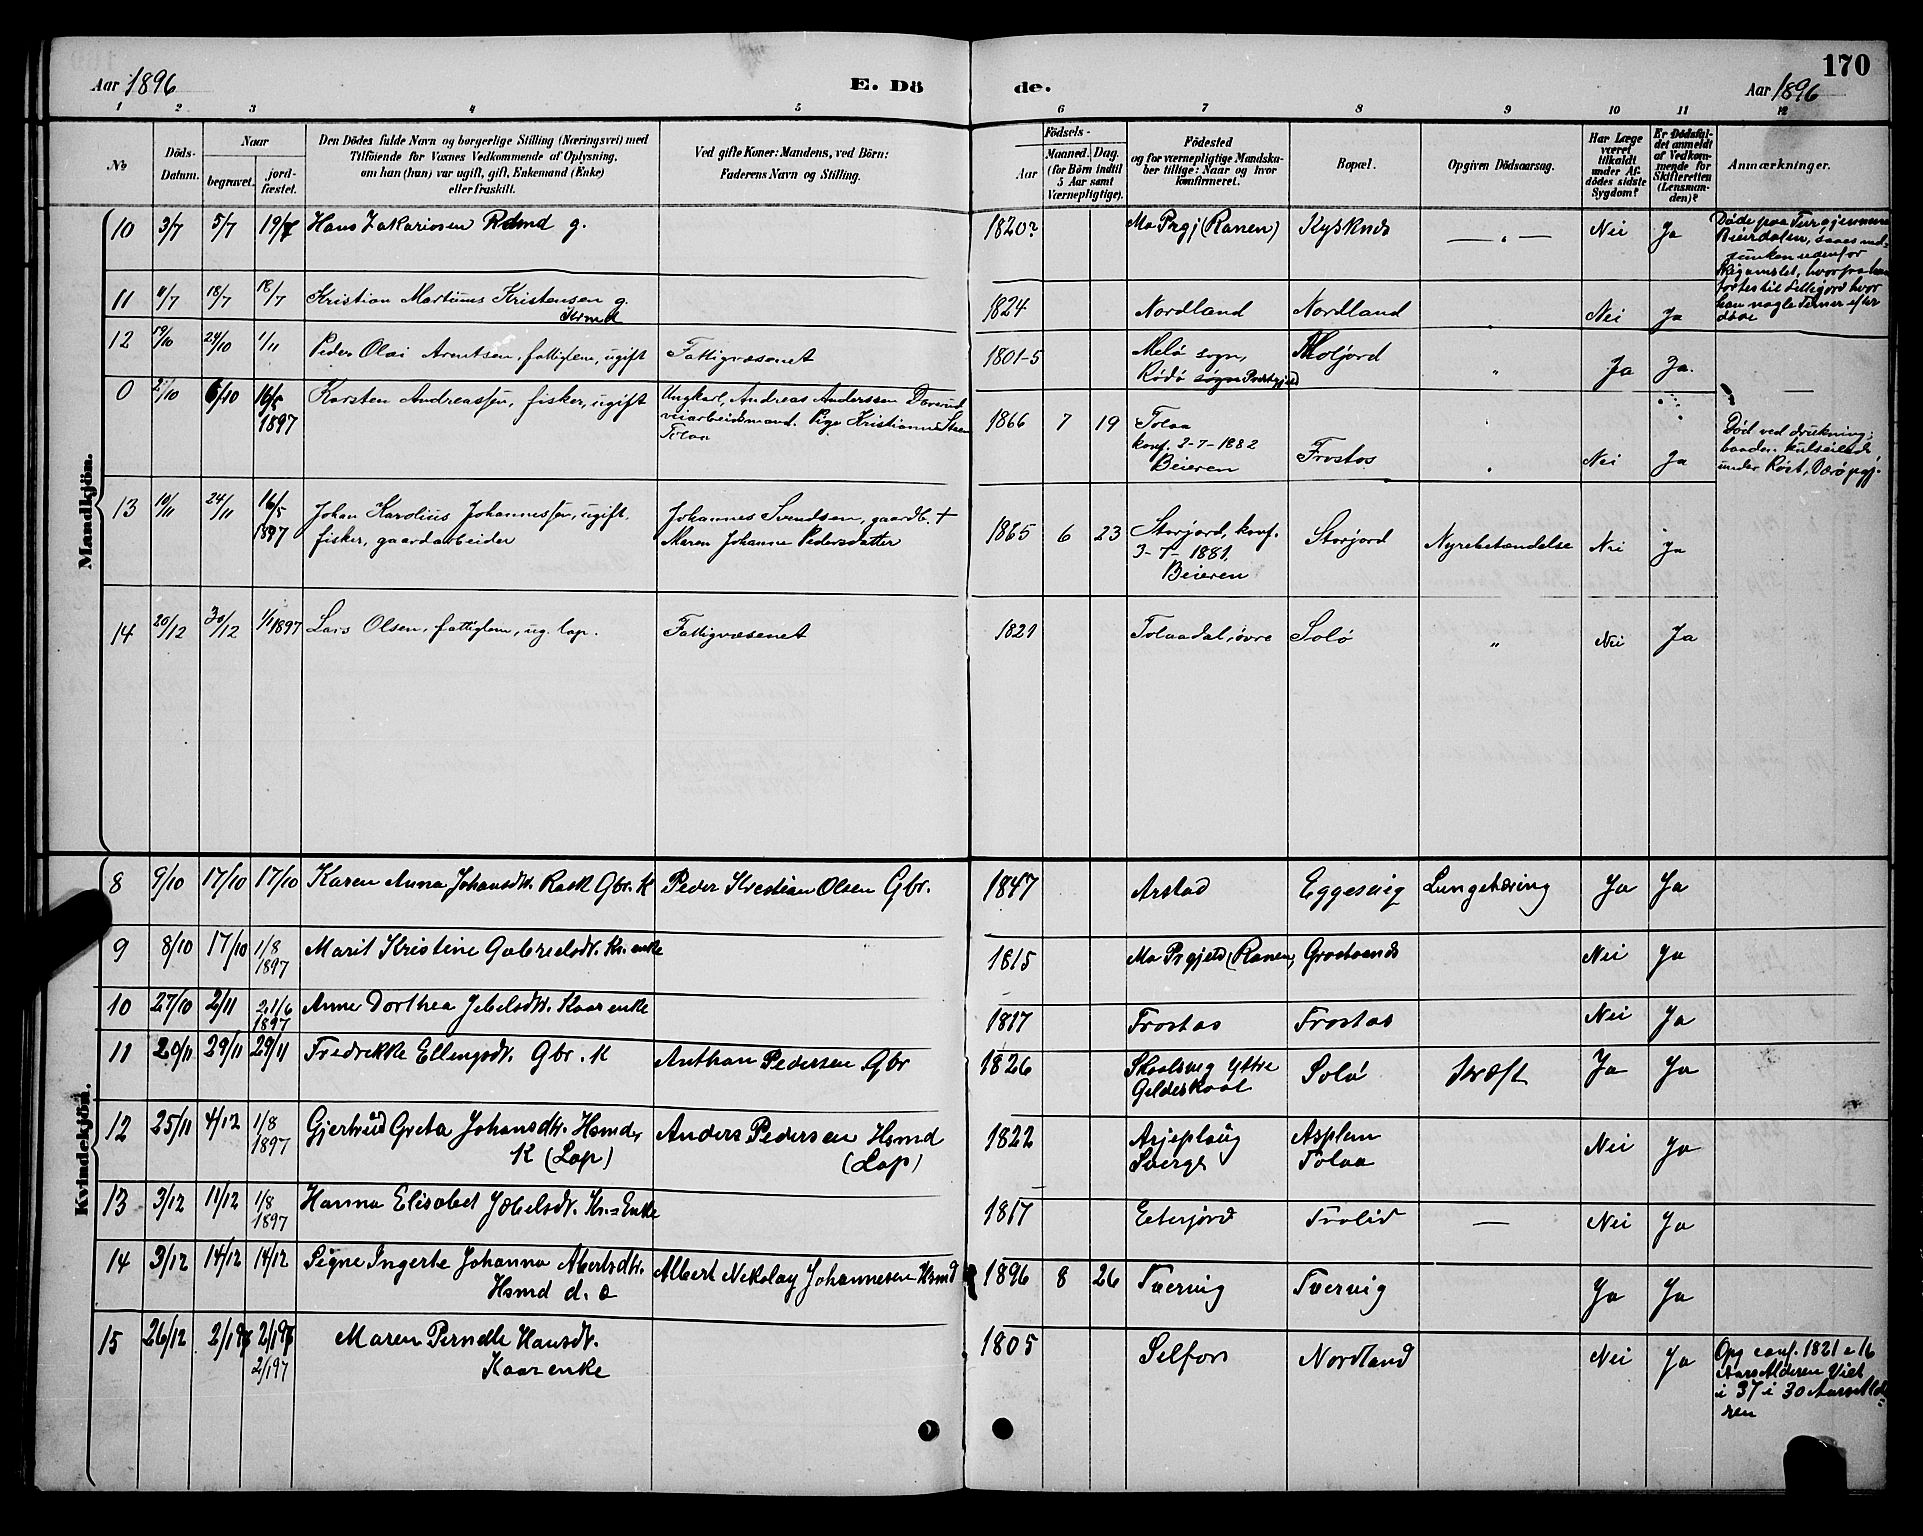 170
Aar 1896
E. Dö
de.
Aar 1896
1 2 3 4 5 6 7 8 9 10 11 12
No
Döds-
Datum.
Naar
begravet.
jord-
fæstet.
Den Dödes fulde Navn og borgerlige Stilling (Næringsvei) med
Tilföiende for Voxnes Vedkommende af Oplysning,
om han (hun) var ugift, gift, Enkemand (Enke)
eller fraskilt.
Ved gifte Koner: Mandens, ved Börn:
Faderens Navn og Stilling.
Födsels-
Aar
Maaned. Dag.
(for Börn indtil
5 Aar samt
Værnepligtige).
Födested
og for værnepligtige Mandska-
ber tillige: Naar og hvor
konfirmeret.
Bopæl.
Opgiven Dödsaarsag.
Har Læge
været
tilkaldt
under Af-
dödes sidste
Sygdom?
Er Dödsfal-
det anmeldt
af Vedkom-
mende for
Skifteretten
(Lensman-
den)?
Anmærkninger.
Mandkjön.
10 3/7 5/7 19/7 Hans Zakariasen Rdmd g. 1820? Mo Prgj (Ranen) Nei Ja
Døde paa
Beierdalen,
11 11/7 18/7 18/7 Kristian Martinus Kristensen g.
Krmd
1824 Nordland Nordland " Nei Ja
12 19/10 24/10 1/11 Peder Olai Arntsen, fattiglem, ugift Fattigvæsenet 1801-5 Melö sogn,
Rödö sogn Prestgjeld
Moljord " Ja Ja.
0 2/10 6/10 16/5
1897
Karsten Andreassen, fisker, ugift Ungkarl, Andreas Anderssen
veiarbeidsmand. Pige Kristianne
Tolaa
1866 7 19 Tolaa
konf. 2-7-1882
Beieren
Frostos " Nei Ja
Død ved drukning;
under Røst, Værø pgj.
13 10/11 24/11 16/5
1897
Johan Karolius Johannessen, ugift,
fisker, gaardarbeider
Johannes Svendsen, gaardb. +
Maren Johanne Pedersdatter
1865 6 23 Storjord, konf.
3-7-1881,
Beieren
Storjord Nyrebetændelse Nei Ja
14 20/12 30/12 1/1 1897 Lars Olsen, fattiglem, ug. lap. Fattigvæsenet 1821 Tolaadal, övre Solö " Nei Ja
Kvindekjön.
8 9/10 17/10 17/10 Karen Anna Johansdtr. Rask Gbr. K Peder Kristian Olsen Gbr. 1847 Arstad Eggesvig Lungetæring Ja Ja
9 8/10 17/10 1/8
1897
Marit Kristine Gabrielsdtr. Kr. enke 1815 Mo Prgjeld (Ranen) Nei Ja
10 27/10 2/11 21/6
1897
Anne Dorthea Jebelsdtr. Kaarenke 1817 Frostos Frostos Nei Ja
11 20/11 29/11 29/11 Fredrikke Ellingsdtr. Gbr. K Anthon Pedersen Gbr 1826 Skaalsvig Yttre
Gildeskaal
Solö Kræft Ja Ja
12 25/11 4/12 1/8
1897
Gjertrud Greta Johansdtr. Hsmds
K (Lap)
Anders Pedersen Hsmd
(Lap)
1822 Arjeplaug
Sverge
Asplem
Tolaa
Nei Ja
13 3/12 11/12 1/8
1897
Hanna Elisabet Jebelsdtr. Kr.=Enke 1817 Eiterjord Trolid — Nei Ja
14 3/12 14/12 14/12 Signe Ingerte Johanna Albertsdtr.
Hsmd d. a
Albert Nikolay Johannesen Hsmd 1896 8 26 Tvervig Tvervig Ja Ja
15 26/12 2/1 97 2/1 97
2/1 97
Maren Pernelle Hansdtr.
Kaarenke
1805 Selfors Nordland Nei Ja
Opg conf. 1821 e 16
Aars Alderen Viet
i 37 i 30 Aars Al-
deren